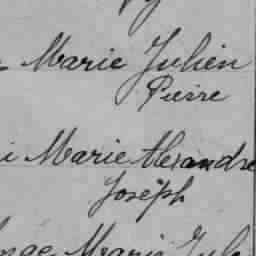 Marie Julien
Pierre
i Marie Alexandre
Joseph
Marie Jul